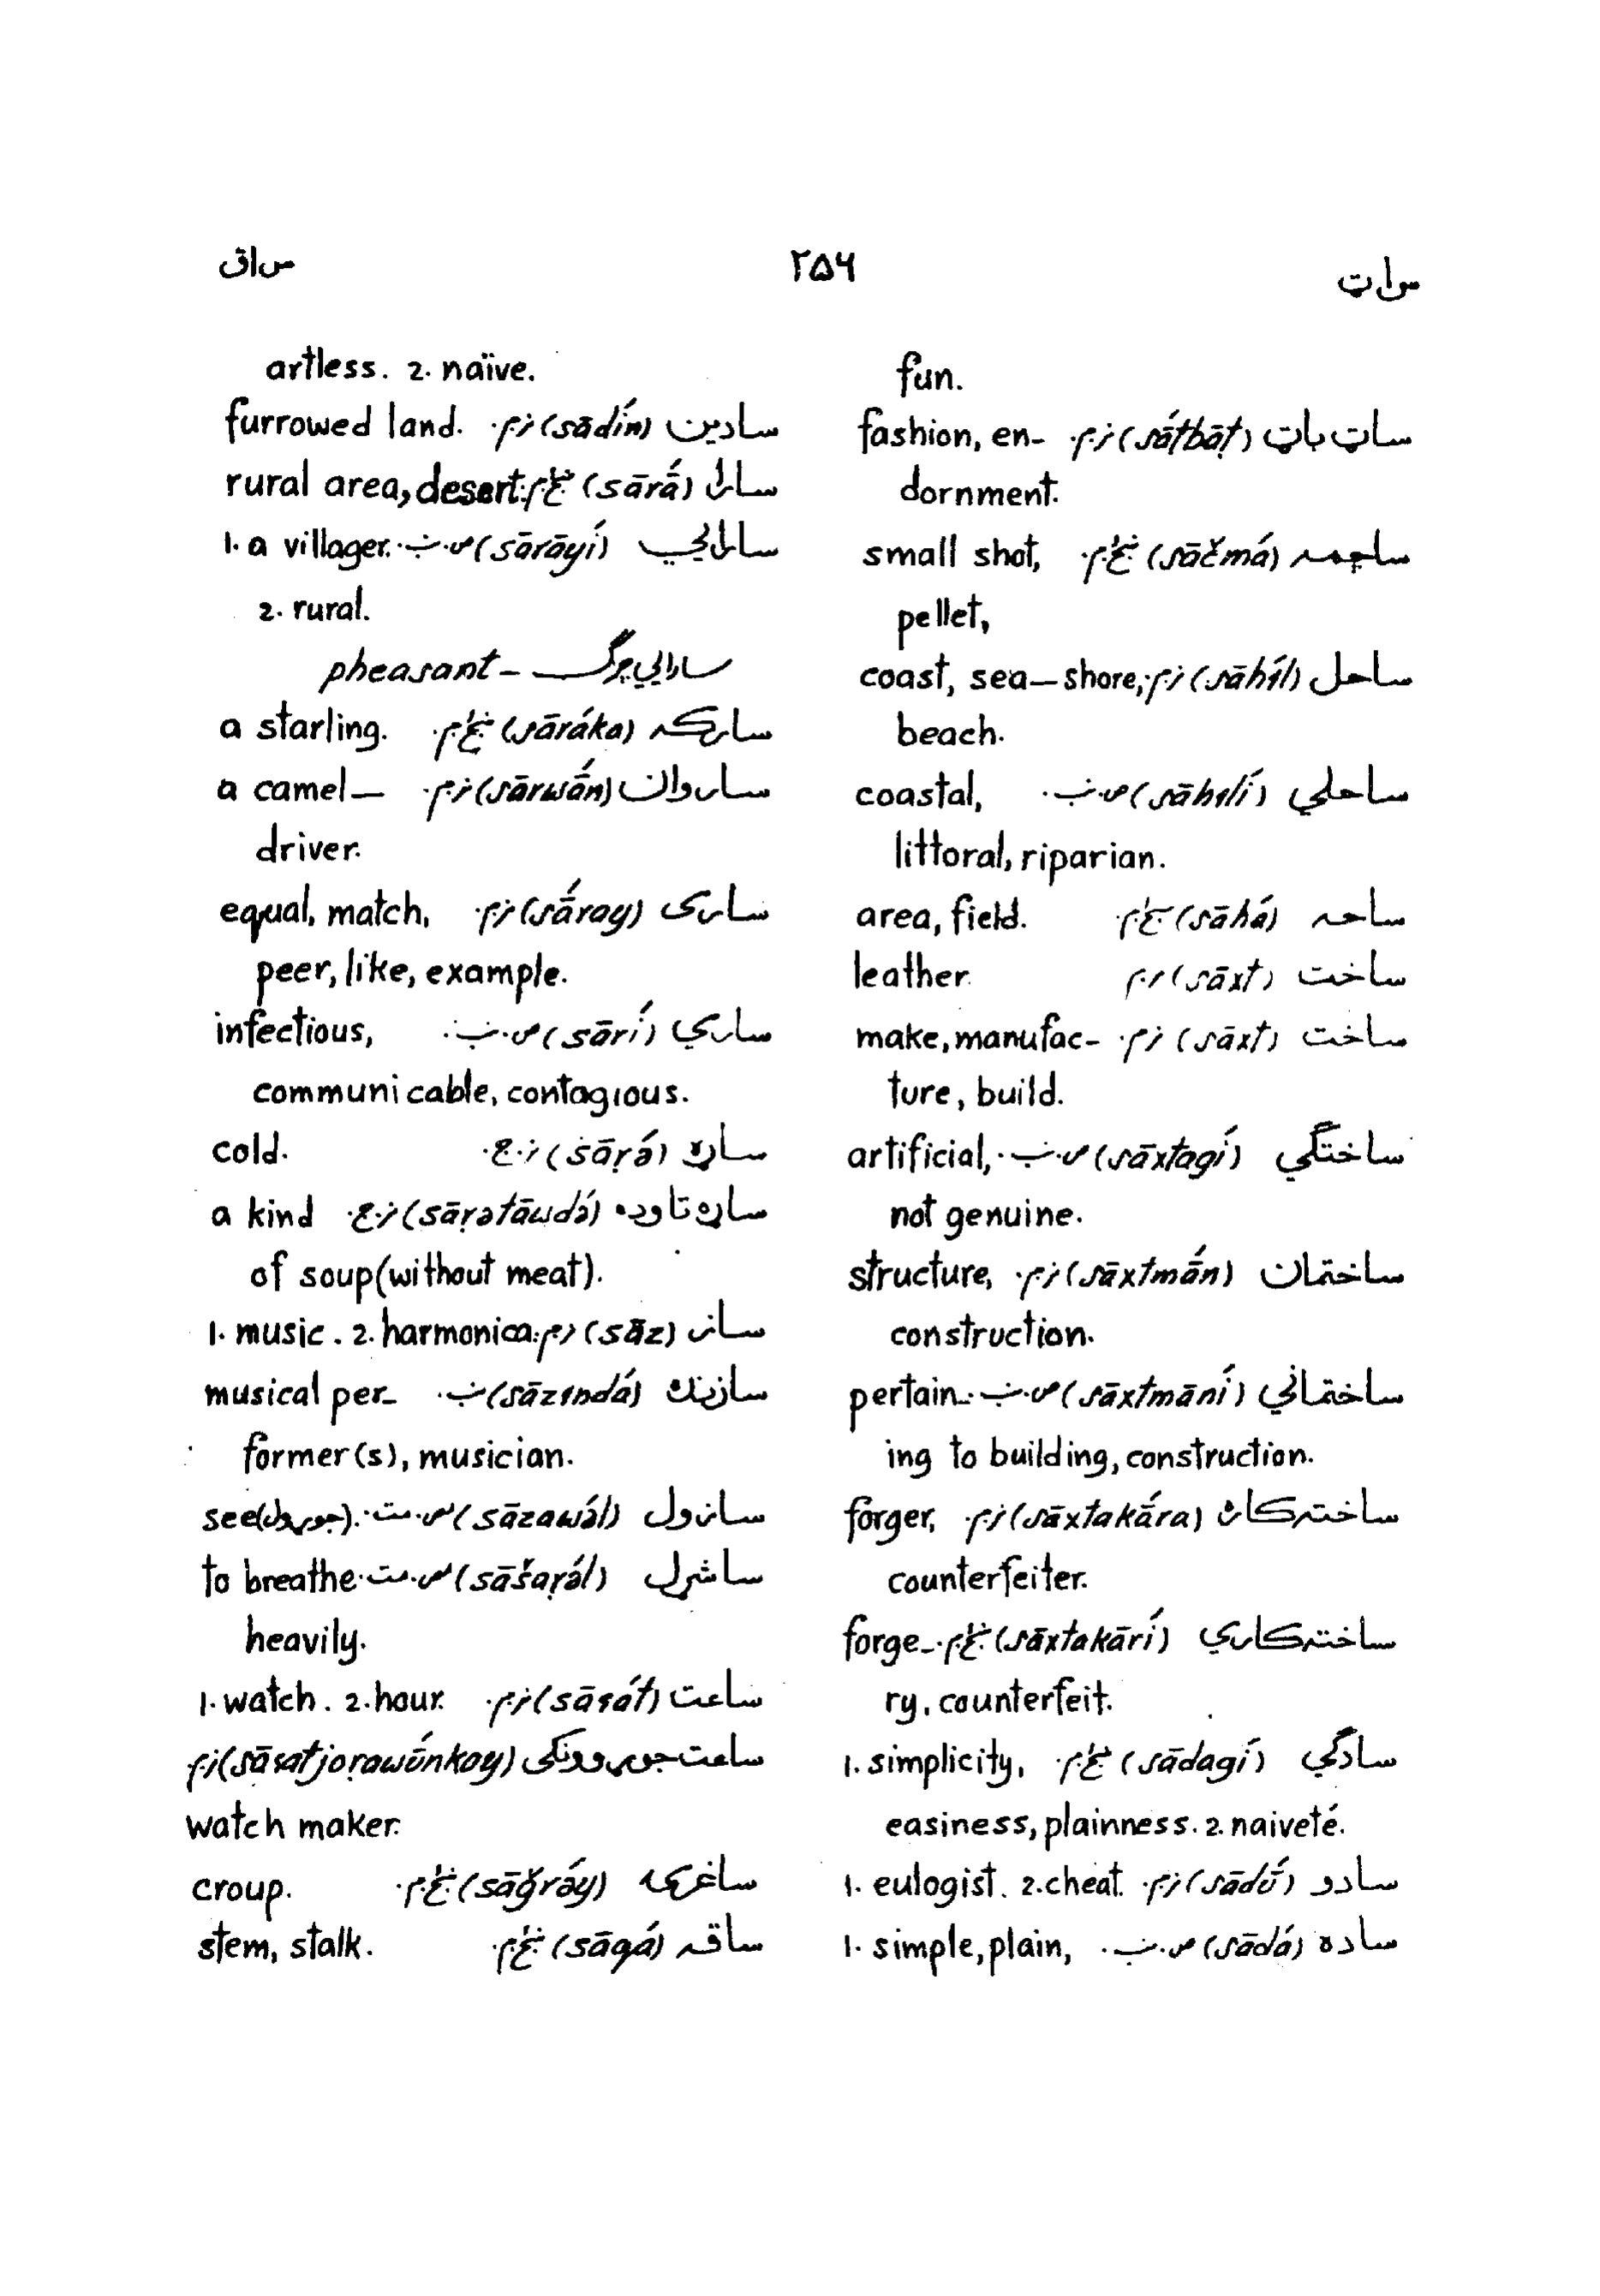 س ا ټ
۲۵۶
س ا ق
fun.
ساټ باټ (sāṭbāṭ) نر.م. fashion, en-
dornment.
ساچمه (sāčmá) ښځ.م. small shot,
pellet,
ساحل (sāhíl) نر.م. coast, sea-shore,
beach.
ساحلي (sāhilí) ص.ب. coastal,
littoral, riparian.
ساحه (sāhá) ښځ.م. area, field.
ساخت (sāxt) نر.م. leather.
ساخت (sāxt) نر.م. make, manufac-
ture, build.
ساختگي (sāxtagí) ص.ب. artificial,
not genuine.
ساختمان (sāxtmā́n) نر.م. structure,
construction.
ساختماني (sāxtmāní) ص.ب. pertain-
ing to building, construction.
ساخته‌کاره (sāxtakā́ra) نر.م. forger,
counterfeiter.
ساخته‌کاري (sāxtakārí) ښځ.م. forge-
ry, counterfeit.
سادگي (sādagí) ښځ.م. 1. simplicity,
easiness, plainness. 2. naiveté.
سادو (sādū́) نر.م. 1. eulogist. 2. cheat.
ساده (sādá) ص.ب. 1. simple, plain,
artless. 2. naïve.
سادين (sādín) نر.م. furrowed land.
سارا (sārā́) ښځ.م. rural area, desert.
سارايي (sārāyí) ص.ب. 1. a villager.
2. rural.
سارايي چرگ - pheasant
سارکه (sāráka) ښځ.م. a starling.
ساروان (sārwā́n) نر.م. a camel-
driver.
ساری (sā́ray) نر.م. equal, match,
peer, like, example.
ساري (sārí) ص.ب. infectious,
communicable, contagious.
ساړه (sāṛə́) نر.ج. cold.
ساړه تاوده (sāṛətāwdə́) نر.ج. a kind
of soup (without meat).
ساز (sāz) نر.م. 1. music. 2. harmonica.
سازنده (sāzindá) ب. musical per-
former(s), musician.
سازول (sāzawə́l) ص.مت. see (جوړول).
ساشړل (sāšaṛə́l) ص.مت. to breathe
heavily.
ساعت (sāsát) نر.م. 1. watch. 2. hour.
ساعت جوړوونکی (sāsatjoṛawū́nkay) نر.م
watch maker.
ساغرۍ (sāǧrə́y) ښځ.م. croup.
ساقه (sāqá) ښځ.م. stem, stalk.